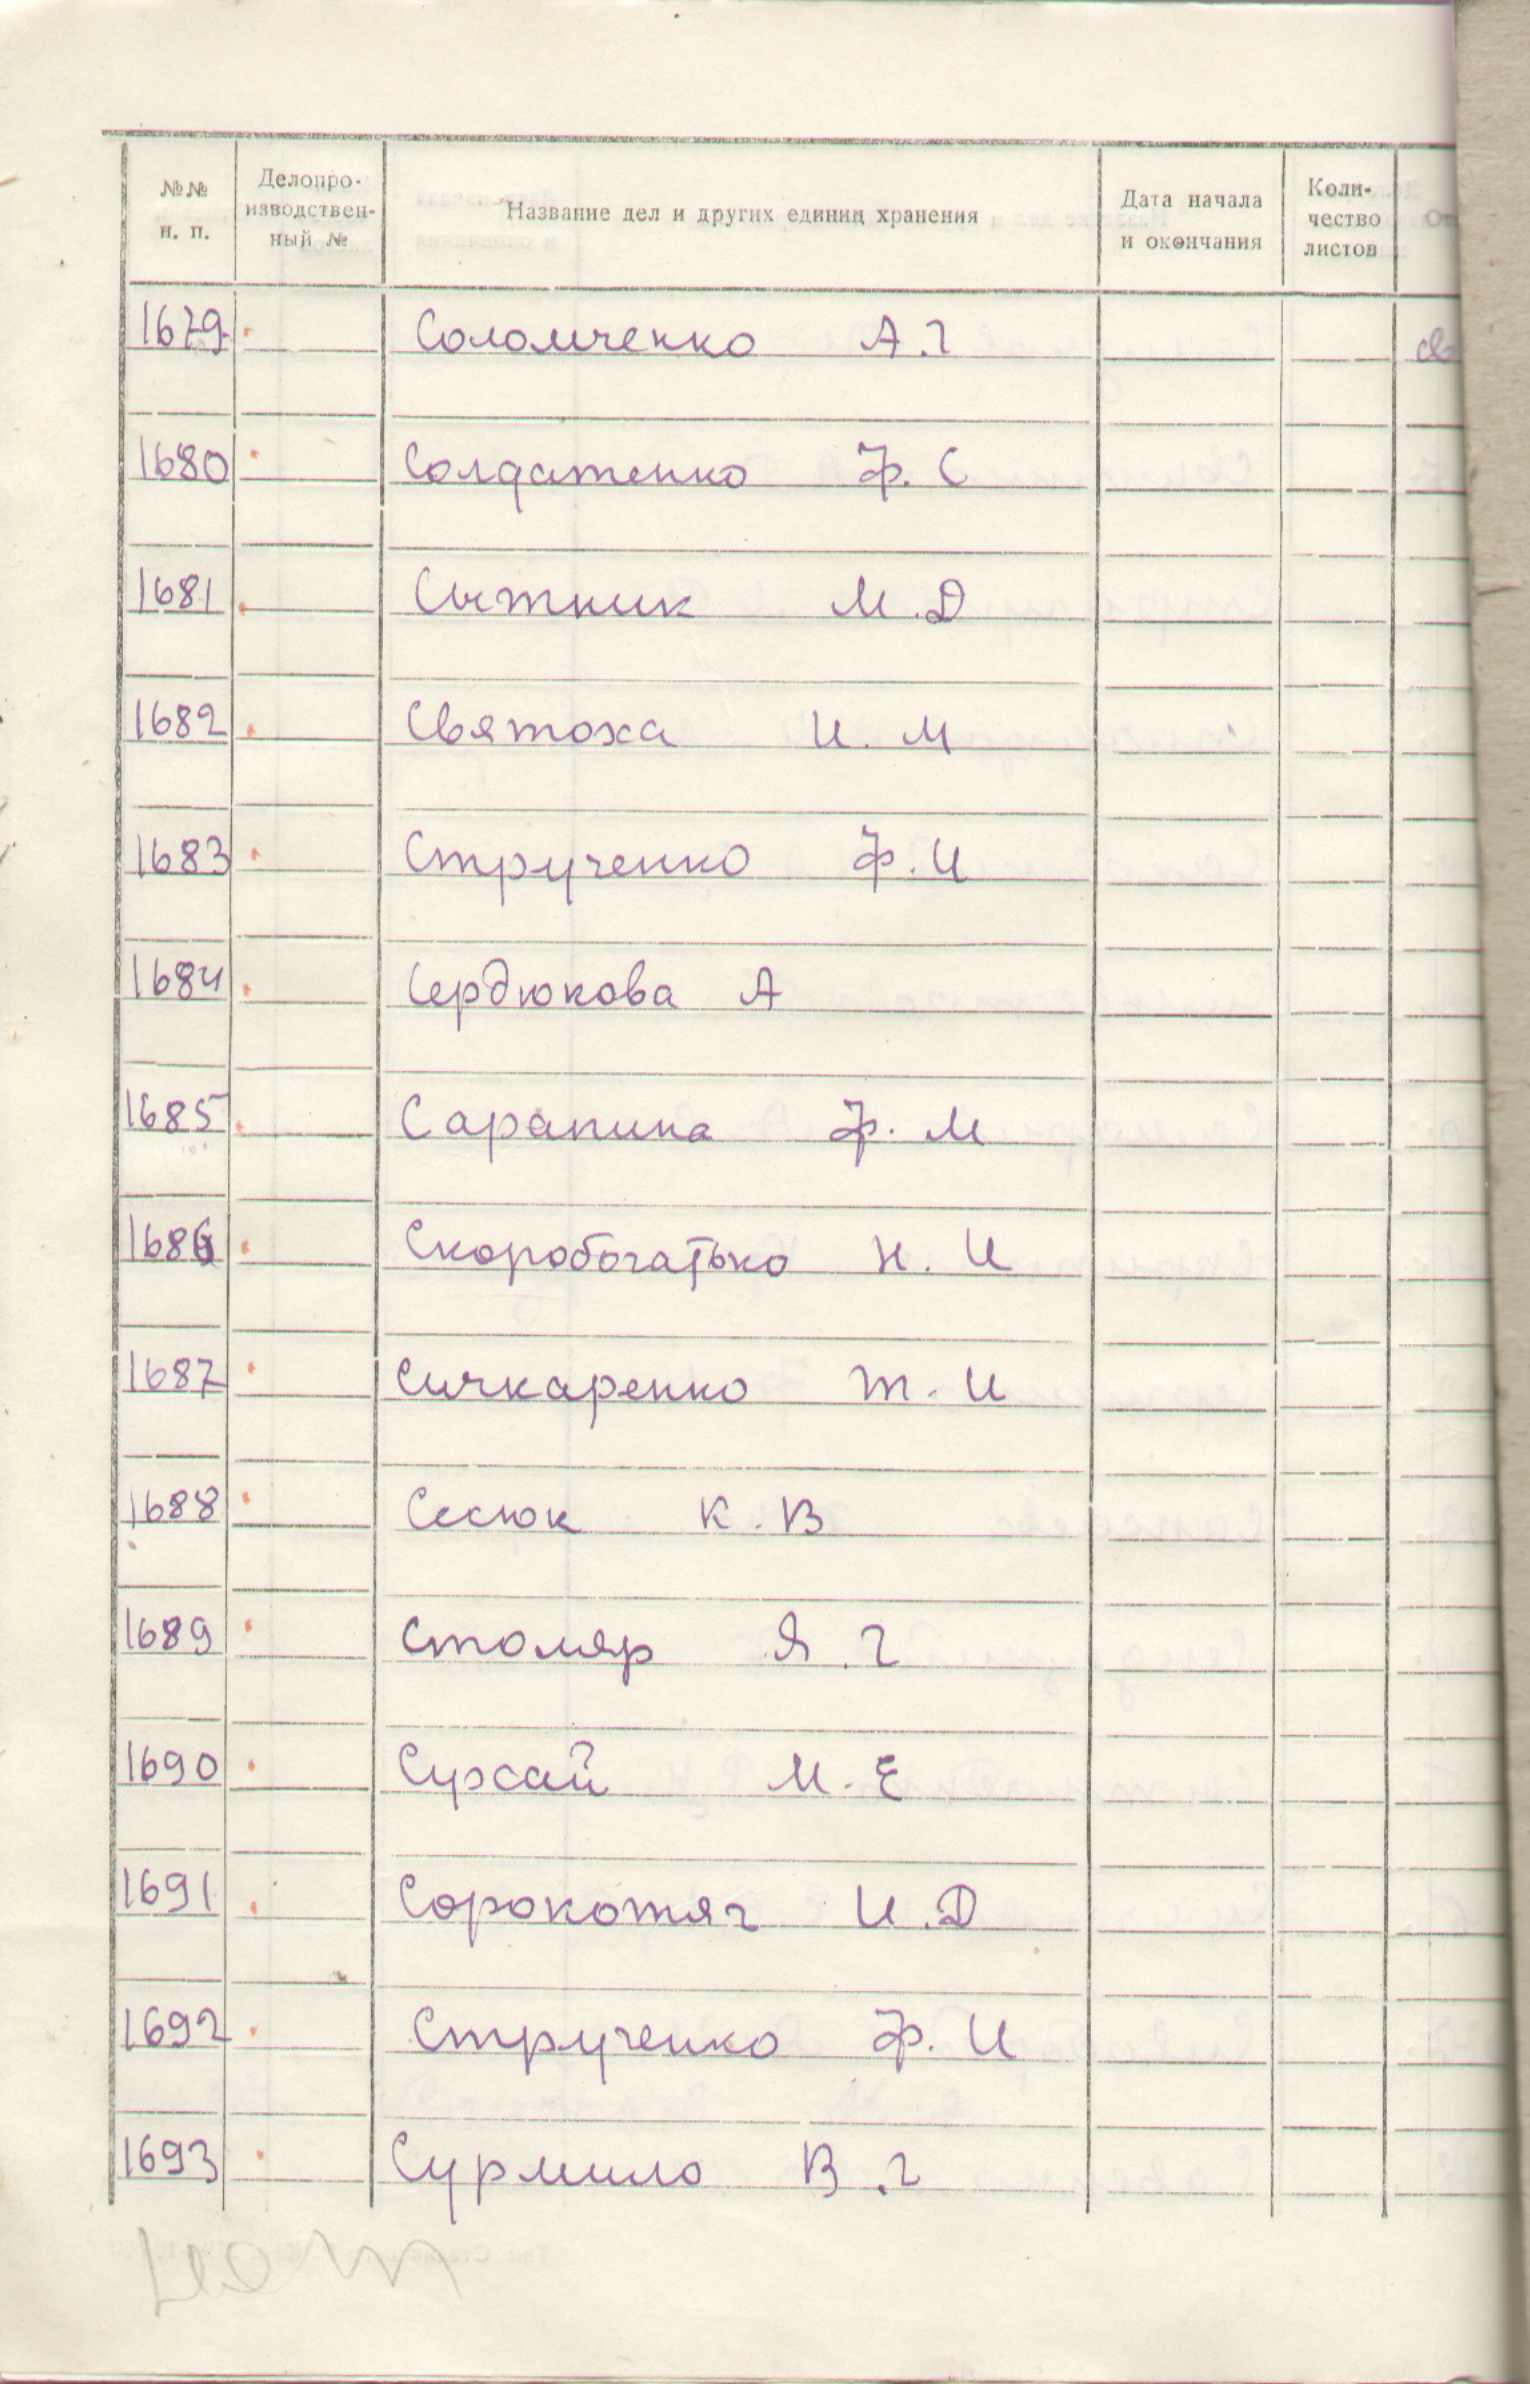 №№ п. п. Делопроизводственный № Название дел и других единиц хранения Дата начала и окончания Количество листов
1679 Соломченко А.Г
1680 Солдатенко Ф.С
1681 Сытник М.Д
1682 Святоха И.М
1683 Струченко Ф.И
1684 Сердюкова А
1685 Сарапина Ф.М
1686 Скоробогатько Н.И
1687 Сичкаренко Т.И
1688 Сесюк К.В
1689 Столяр Я.Г
1690 Сухсай М.Е
1691 Сорокотяг И.Д
1692 Струченко Ф.И
1693 Сурмило В.Г